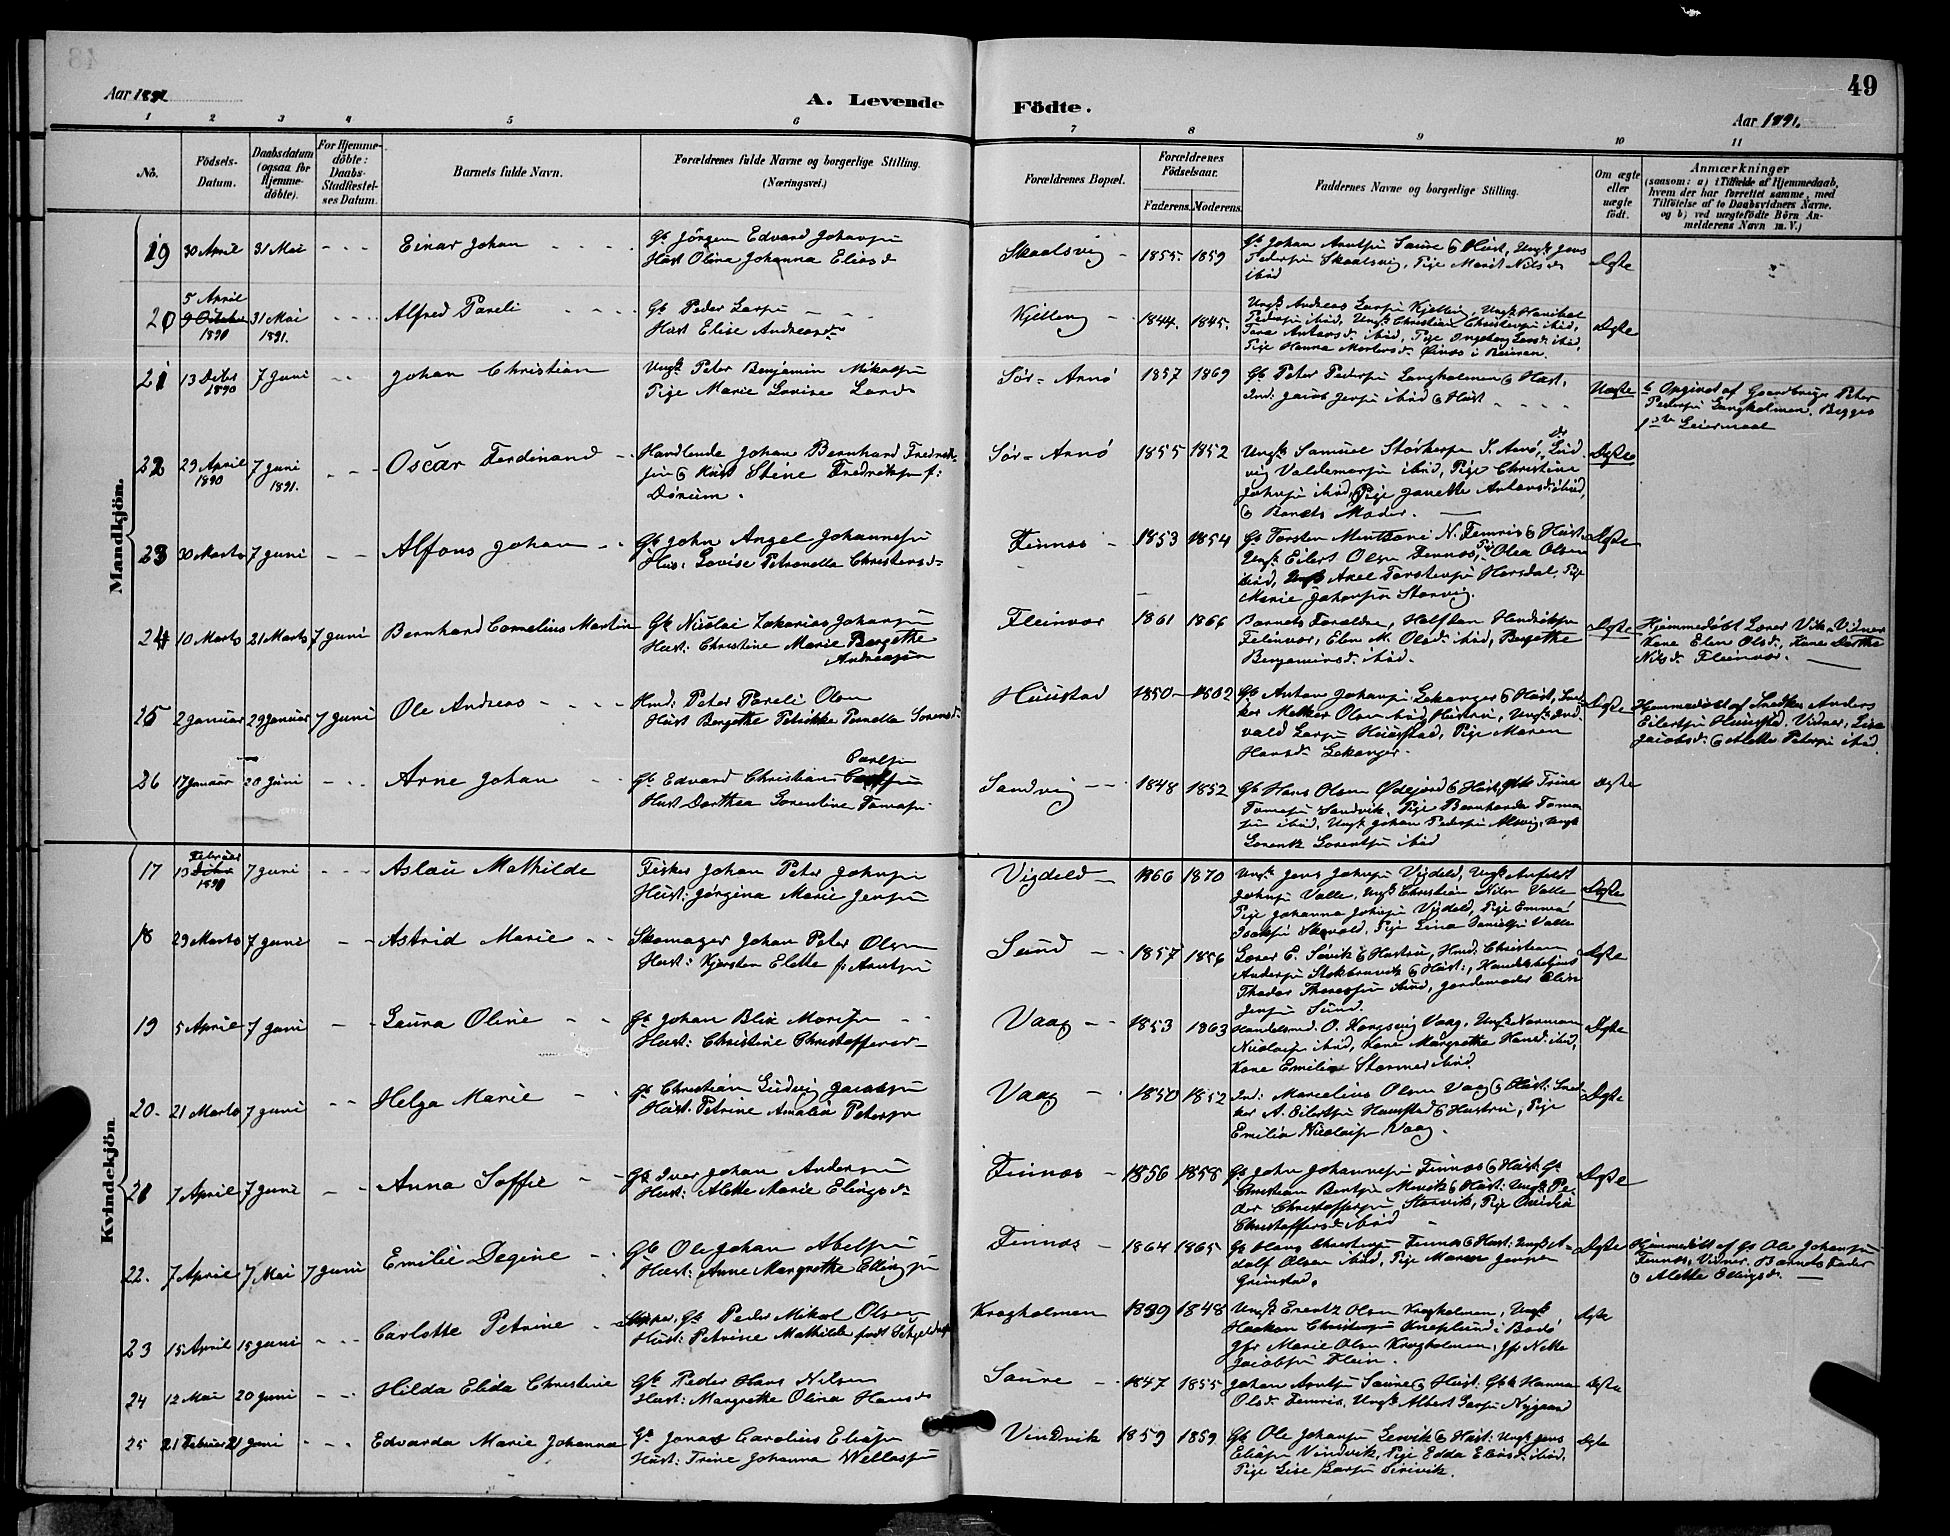 49
Aar 1891
A. Levende Födte.
Aar 1891.
1 2 3 4 5 6 7 8 9 10 11
No.
Födsels-Datum.
Daabsdatum (ogsaa for Hjemme-döbte).
For Hjemme-döbte: Daabs-Stadfæstel-ses Datum.
Barnets fulde Navn.
Forældrenes fulde Navne og borgerlige Stilling.
(Næringsvei.)
Forældrenes Bopæl.
Forældrenes Födselsaar.
Faderens. Moderens.
Faddernes Navne og borgerlige Stilling.
Om ægte eller uægte födt.
Anmærkninger
(saasom: a) i Tilfælde af Hjemmedaab, hvem der har forrettet samme, med Tilföielse af to Daabsvidners Navne, og b) ved uægtefödte Börn Anmelderens Navn m. V.)
Mandkjön.
19 30 April 31 Mai - - - Einar Johan
Gb Jörgen Edvard Johansen
Hust Olina Johanna Eliasd
Skaalsvig 1855. 1859
Gb Johan Arntsen Saure & Hust, Ungk Jens
Pedersen Skaalsvig, Pige Marit Nilsd
ibid
Ægte
20 5 April 1890 31 Mai 1891. Alfred Pareli
Gb Peder Larsen
Hust Elise Andreasd
Kjelling 1844. 1845.
Ungk Andreas Larsen Kjelling, Ungk Hanibal
Pedersen ibid, Ungk Christian Christensen ibid,
Pige Hanna Mortensd.
Ægte
21 13 Dcbr 1890 7 Juni Johan Christian
Ungk Peter Benjamin Mikalsen
Pige Marie Lovise Larsd
Sör-Arnö 1857 1869
Gb Peter Pedersen Langholmen & Hust,
Ind: Jacob Jensen ibid & Hust
Uægte
Opgivet af Gaardbruger Peter
Pedersen Langholmen. Begges
1ste Leiermaal
22 29 April 1890 7 Juni 1891. Oscar Ferdinand
Handlende Johan Bernhard Fredrik-
sen & Hust Stine Fredriksen f:
Dörum.
Sör-Arnö 1855 1852
Ungk Samuel Störkersen S. Arnö, Lud
vig Valdemarsen ibid, Pige Christine
Johnsen ibid, Pige Janette Antonsd ibid,
& Barnets Moder.
Ægte
23 30 Marts 7 Juni Alfons Johan
Gb John Angel Johannesen
Hus: Lovise Petronella Christensd
Finnes 1853 1854
Ungk Eilert Olsen Finnes, Pig Olea Olsen
ibid, Ungk Axel Torstensen Horsdal, Pige
Marie Johansen Storvig.
Ægte
24 10 Marts 21 Marts 7 Juni Bernhard Cornelius Martin
Gb Nicolai Zakarias Johansen
Hust: Christine Marie Bergithe
Andreasen
Fleinvær 1861 1866
Barnets Forældre, Halfdan Hendriksen
Fleinvær, Elen M. Olsd. ibid, Bergithe
Benjaminsd. ibid.
Ægte
Hjemmedöbt Lærer Vik. Vidner
Kone Elen Olsd, Kone Dorthe
Nilsd. Fleinvær.
25 2 Januar 29 Januar 7 Juni Ole Andreas
Hmd: Peter Pareli Olsen
Hust Bergithe Petrikke Pernella Sorensd.
Huustad 1850 1852
Gb Anton Johansen Lekanger & Hust, Sned
ker Melker Olsen ibid Hustru, Ungk Ind
vald Larsen Huustad, Pige Maren
Hansd. Lekanger.
Ægte
Hjemmedöbt af Snedker Anders
Eilertsen Huustad. Vidner: Lisa
Jacobsd. & Alette Petersen ibid.
26 17 Januar 20 Juni Arne Johan
Carlsen
Gb Edvard Christian
Hust Dorthea Sorentine Tomasen
Sandvig 1848 1852
Gb Hans Olsen Ødejord & Hust, Trine
Tomasen Sandvik, Pige Bernharda Toma
sen ibid, Ungk Johan Pedersen Alsvig, Ungk
Lorentz Lorentsen ibid
Ægte
Kvindekjön
17 13 Februar 1891 7 Juni Aslau Mathilde
Fisker Johan Peter Johnsen
Hust: Jörgina Marie Jensen
Vigdeld 1866 1870
Ungk Jens Johnsen Vigdeld, Ungk
Johnsen Valle, Ungk Christian Nilsen Valle
Pige Johanna Johnsen Vigdeld, Pige Emma
Isaksen Skavold, Pige Lina Danielsen Valle
Ægte
18 29 Marts 7 Juni Astrid Marie
Skomager Johan Peter Olsen
Hust: Kjersten Elette f. Arntsen
Sund 1857 1856
Lærer C. Sövik & Hustru, Hmd: Christian
Andersen Stokbravik & Hust:, Handelsbetjent
Thodor Thoresen Sund, Jordemoder Eline
Jensen Sund.
Ægte
19 5 April 7 Juni Laura Oline
Gb Johan Blix
Hust: Christine Christoffersd
Vaag 1853 1863
Handelsmd. O. Kongsvig Vaag, Ungk Norman
Nicolaisen ibid, Kone Margrethe Hansd: ibid,
Kone Emilia Stormer ibid.
Ægte
20. 21 Marts 7 Juni Helga Marie
Gb Christian Ludvig Jacobsen
Hust: Petrine Amalia Petersen
Vaag 1850 1852
Ind: Marcelius Olsen Vaag & Hust: Sned
ker A. Eilertsen Huustad & Hustru, Pige
Emilia Nicolaisen Vaag.
Ægte
21 7 April 7 Juni Anna Soffie
Gb Ivar Johan Andersen
Hust: Alette Marie Elingsd
Finnes 1856 1858
Gb John Johannesen Finnes & Hust: Gb
Christian Bentsen Mevik & Hust: Ungk Pe-
der Christoffersen Storvik, Pige
Christoffersd. ibid
Ægte
22. 7 April 7 Mai 7 Juni Emilie Degine
Gb Ole Johan Abelsen
Hust: Anne Margrethe Ellingsen
Finnes 1864 1865
Gb Hans Christensen Finnes & Hust: Ungk A-
dolf Olsen ibid, Pige Maren Jensen
Grimstad.
Ægte
Hjemmedöbt af Gb Ole Johansen
Finnes, Vidner. Barnets Fader
& Alette Ellingsd.
23 15 April 15 Juni Carlotte Petrine
Skipper, Gb Peder Mikal Olsen
Hust: Petrine Mathilde født
Kragholmen 1839 1848
Ungk Erentz Olsen Kragholmen, Ungk
Haakon Christensen Kneplund i Bodö
Gfr Marie Olsen Kragholmen, Gfr Nette
Jacobsen Flein.
Ægte
24 12 Mai 20 Juni Hilda Elida Christine
Gb Peder Hans Nilsen
Hust: Margrethe Olina Hansd
Saure 1847 1855
Johan Arntsen Saure & Hust: Gbk Hanna
Olsd. Femris, Ungk Albert Larsen Nygaard
Ægte
25 21 Februar 21 Juni Edvarda Marie Johanna
Gb Jonas Carolius Eliasen
Hust: Trine Johanna Wellasen
Vindvik 1859 1859
Gb Ole Johansen Lervik & Hust: Ungk Jens
Eliasen Vindvik, Pige Edda Eliasd. ibid,
Pige Lise Larsen
Ægte